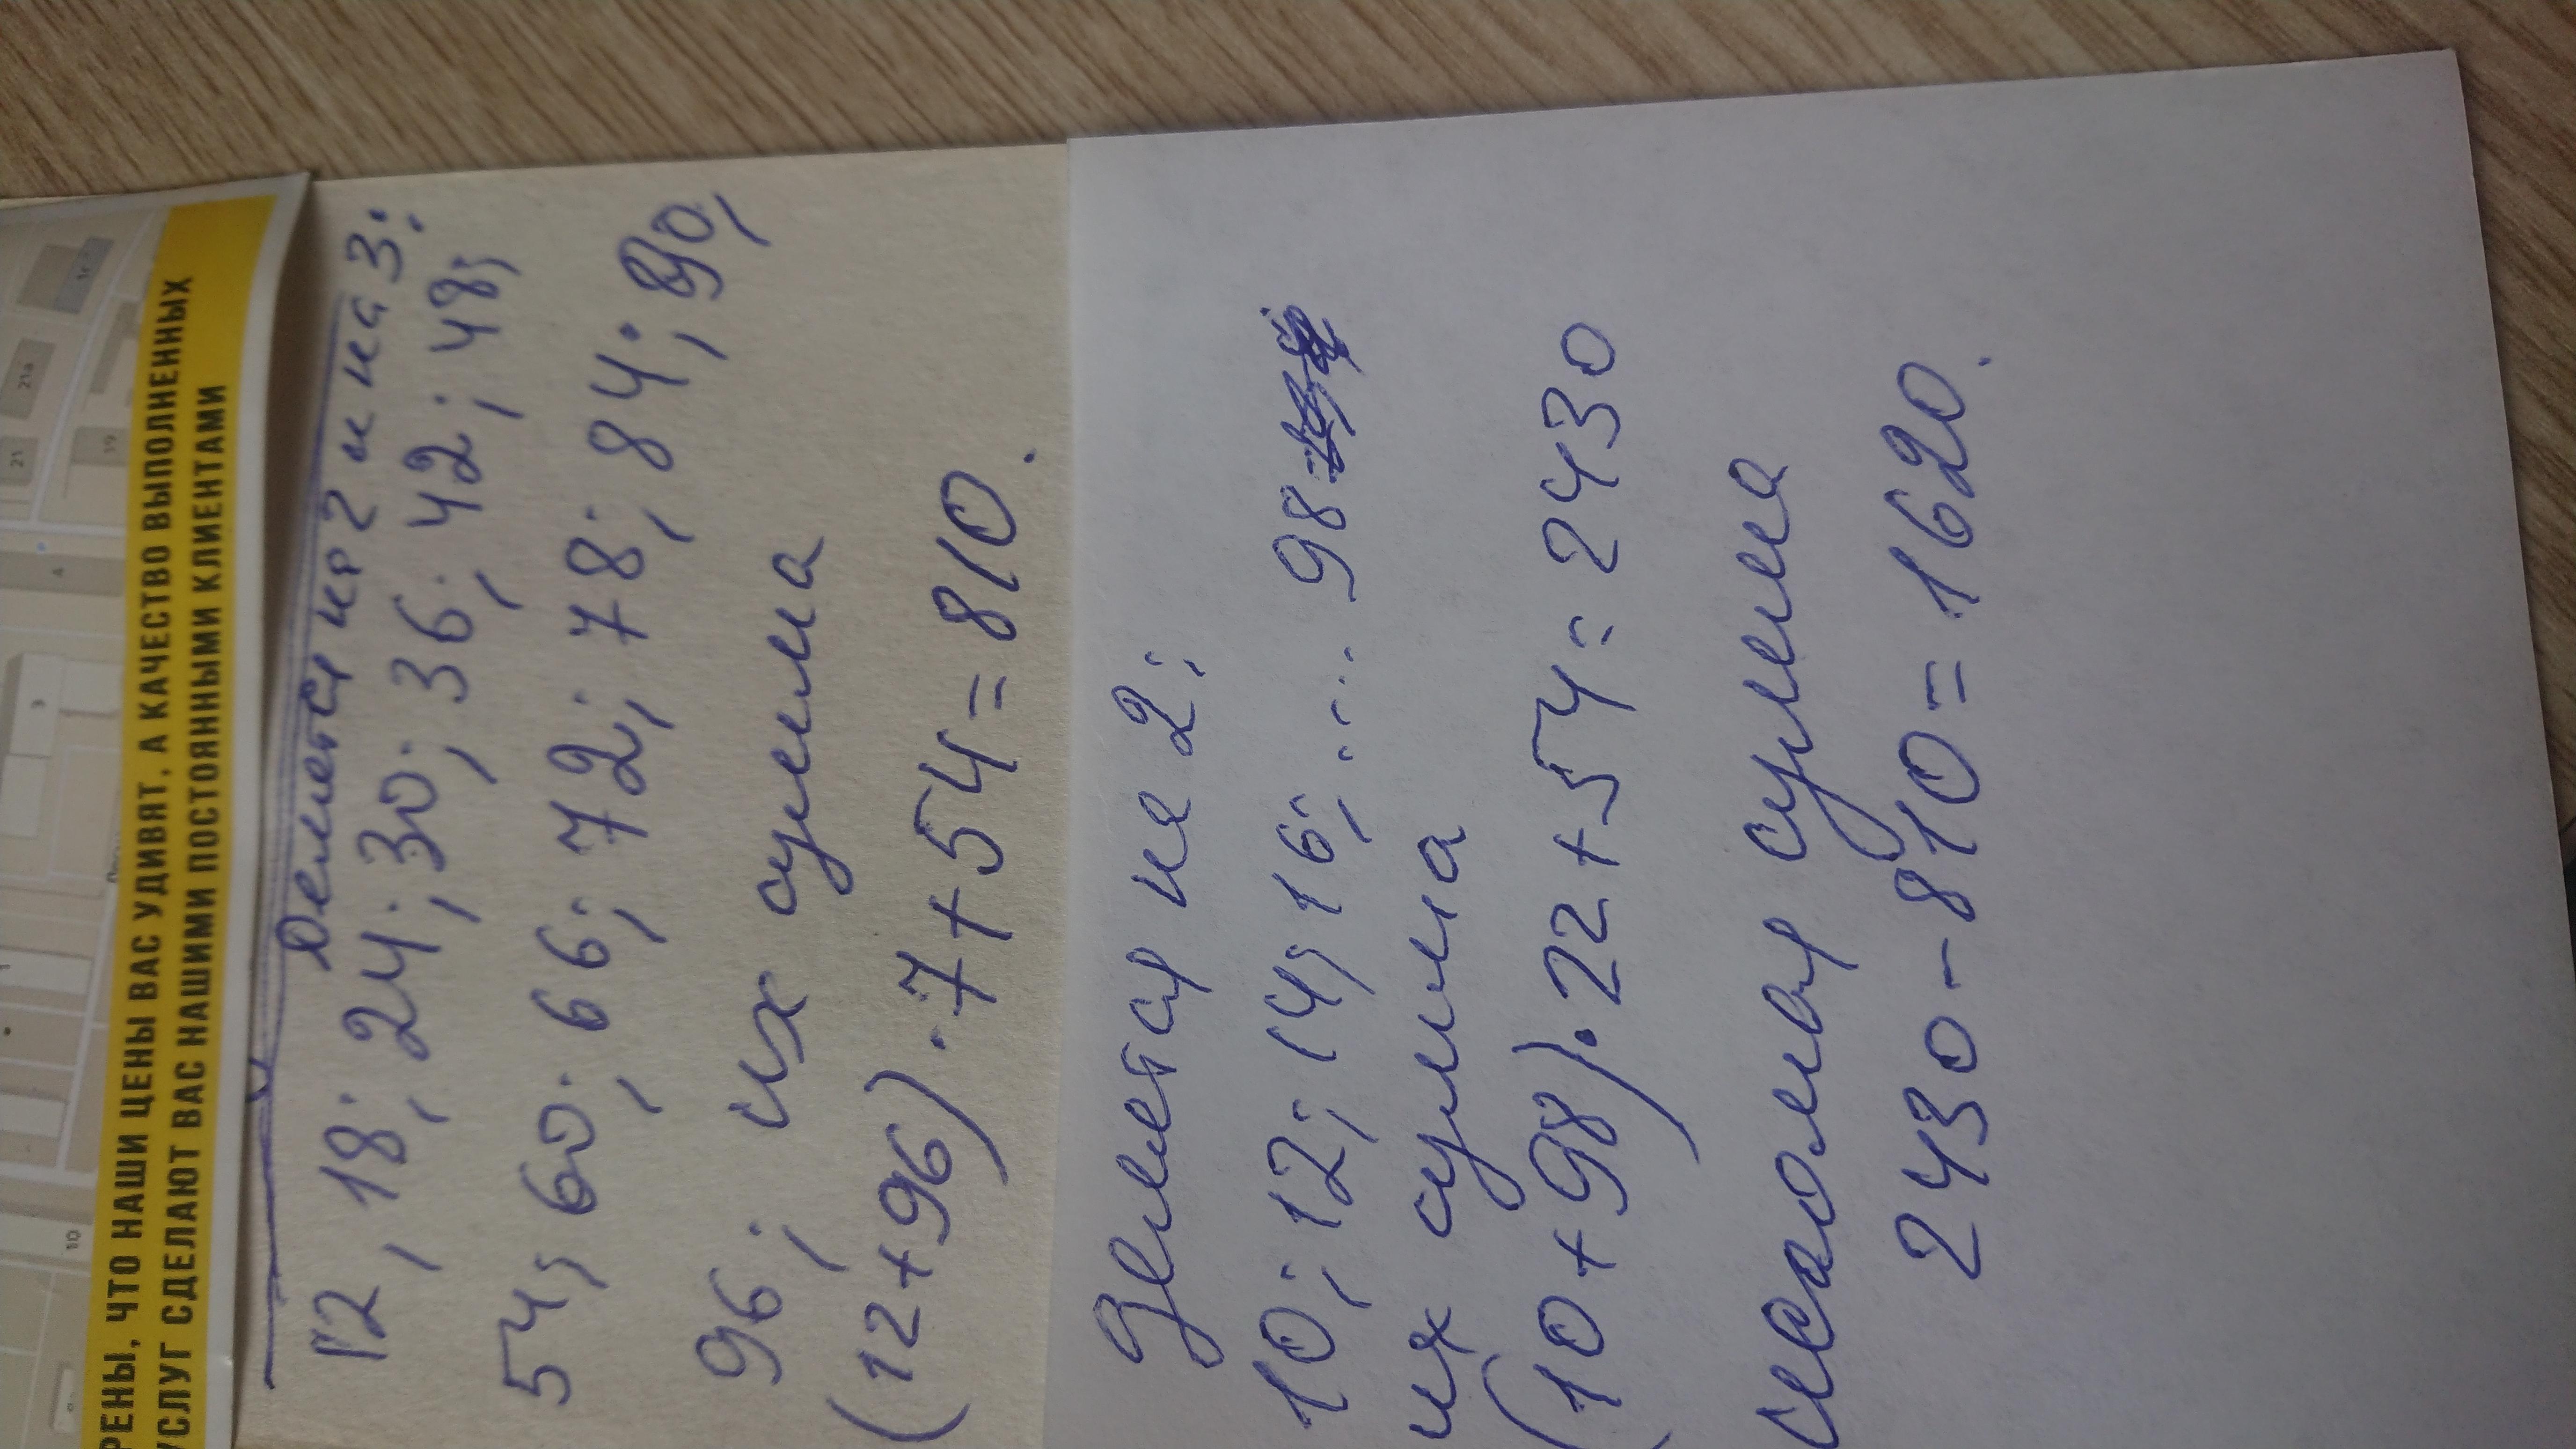 РЕНЫ, ЧТО НАШИ ЦЕНЫ ВАС УДИВЯТ, А КАЧЕСТВО ВЫПОЛНЕННЫХ
УСЛУГ СДЕЛАЮТ ВАС НАШИМИ ПОСТОЯННЫМИ КЛИЕНТАМИ
Делится на 2 и на 3:
12; 18; 24; 30; 36; 42; 48;
54; 60; 66; 72; 78; 84; 90;
96; их сумма
(12+96)·7+54=810.
Делятся на 2:
10; 12; 14; 16; ... 98
их сумма
(10+98)·22+54=2430
искомая сумма
2430-810=1620.